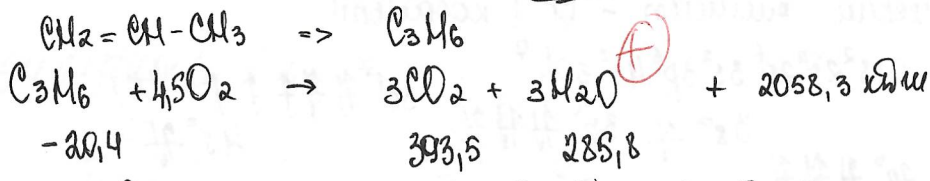 CH2 = CH - CH3 => C3H6
C3H6 + 4,5O2 → 3CO2 + 3H2O + 2058,3 кДж
-20,4 393,5 285,8